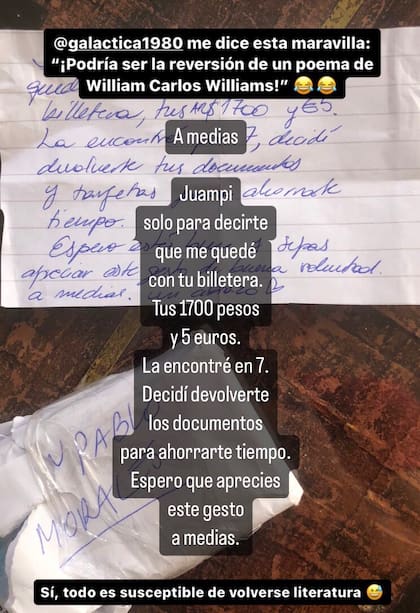 @galactica1980 me dice esta maravilla:
“¡Podría ser la reversión de un poema de
William Carlos Williams!” 😂😂
billetera, tus AR$1700 y €5.
La encontré 7, decidí
devolverte tus documentos
y tarjetas ahorrarte
tiempo.
Espero sepas
apreciar este buena voluntad.
a medias.
A medias
Juampi
solo para decirte
que me quedé
con tu billetera.
Tus 1700 pesos
y 5 euros.
La encontré en 7.
Decidí devolverte
los documentos
para ahorrarte tiempo.
Espero que aprecies
este gesto
a medias.
PABLO
MORALES
Sí, todo es susceptible de volverse literatura 😅